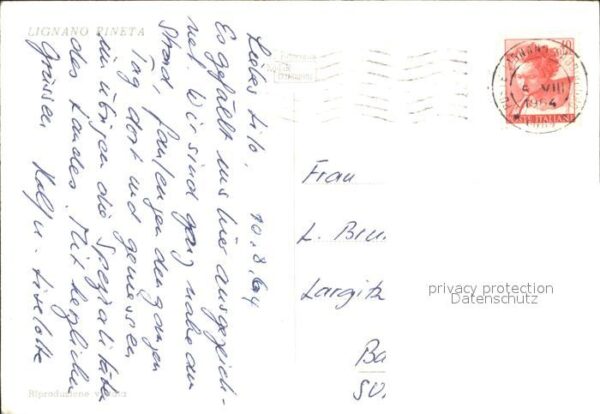 LIGNANO PINETA
10.8.64
Liebes Lilo,
Es gefällt uns hier ausgezeich-
net. Wir sind ganz nahe am
Strand, faulenzen den ganzen
Tag dort und geniessen
im übrigen die Spezialitäten
des Landes. Mit herzlichen
Grüssen Ralf u. Liselotte
Riproduzione vietata
10
VIII
1964
POSTE ITALIANE
Frau
L. Bru
Largitz
Ba
privacy protection
Datenschutz